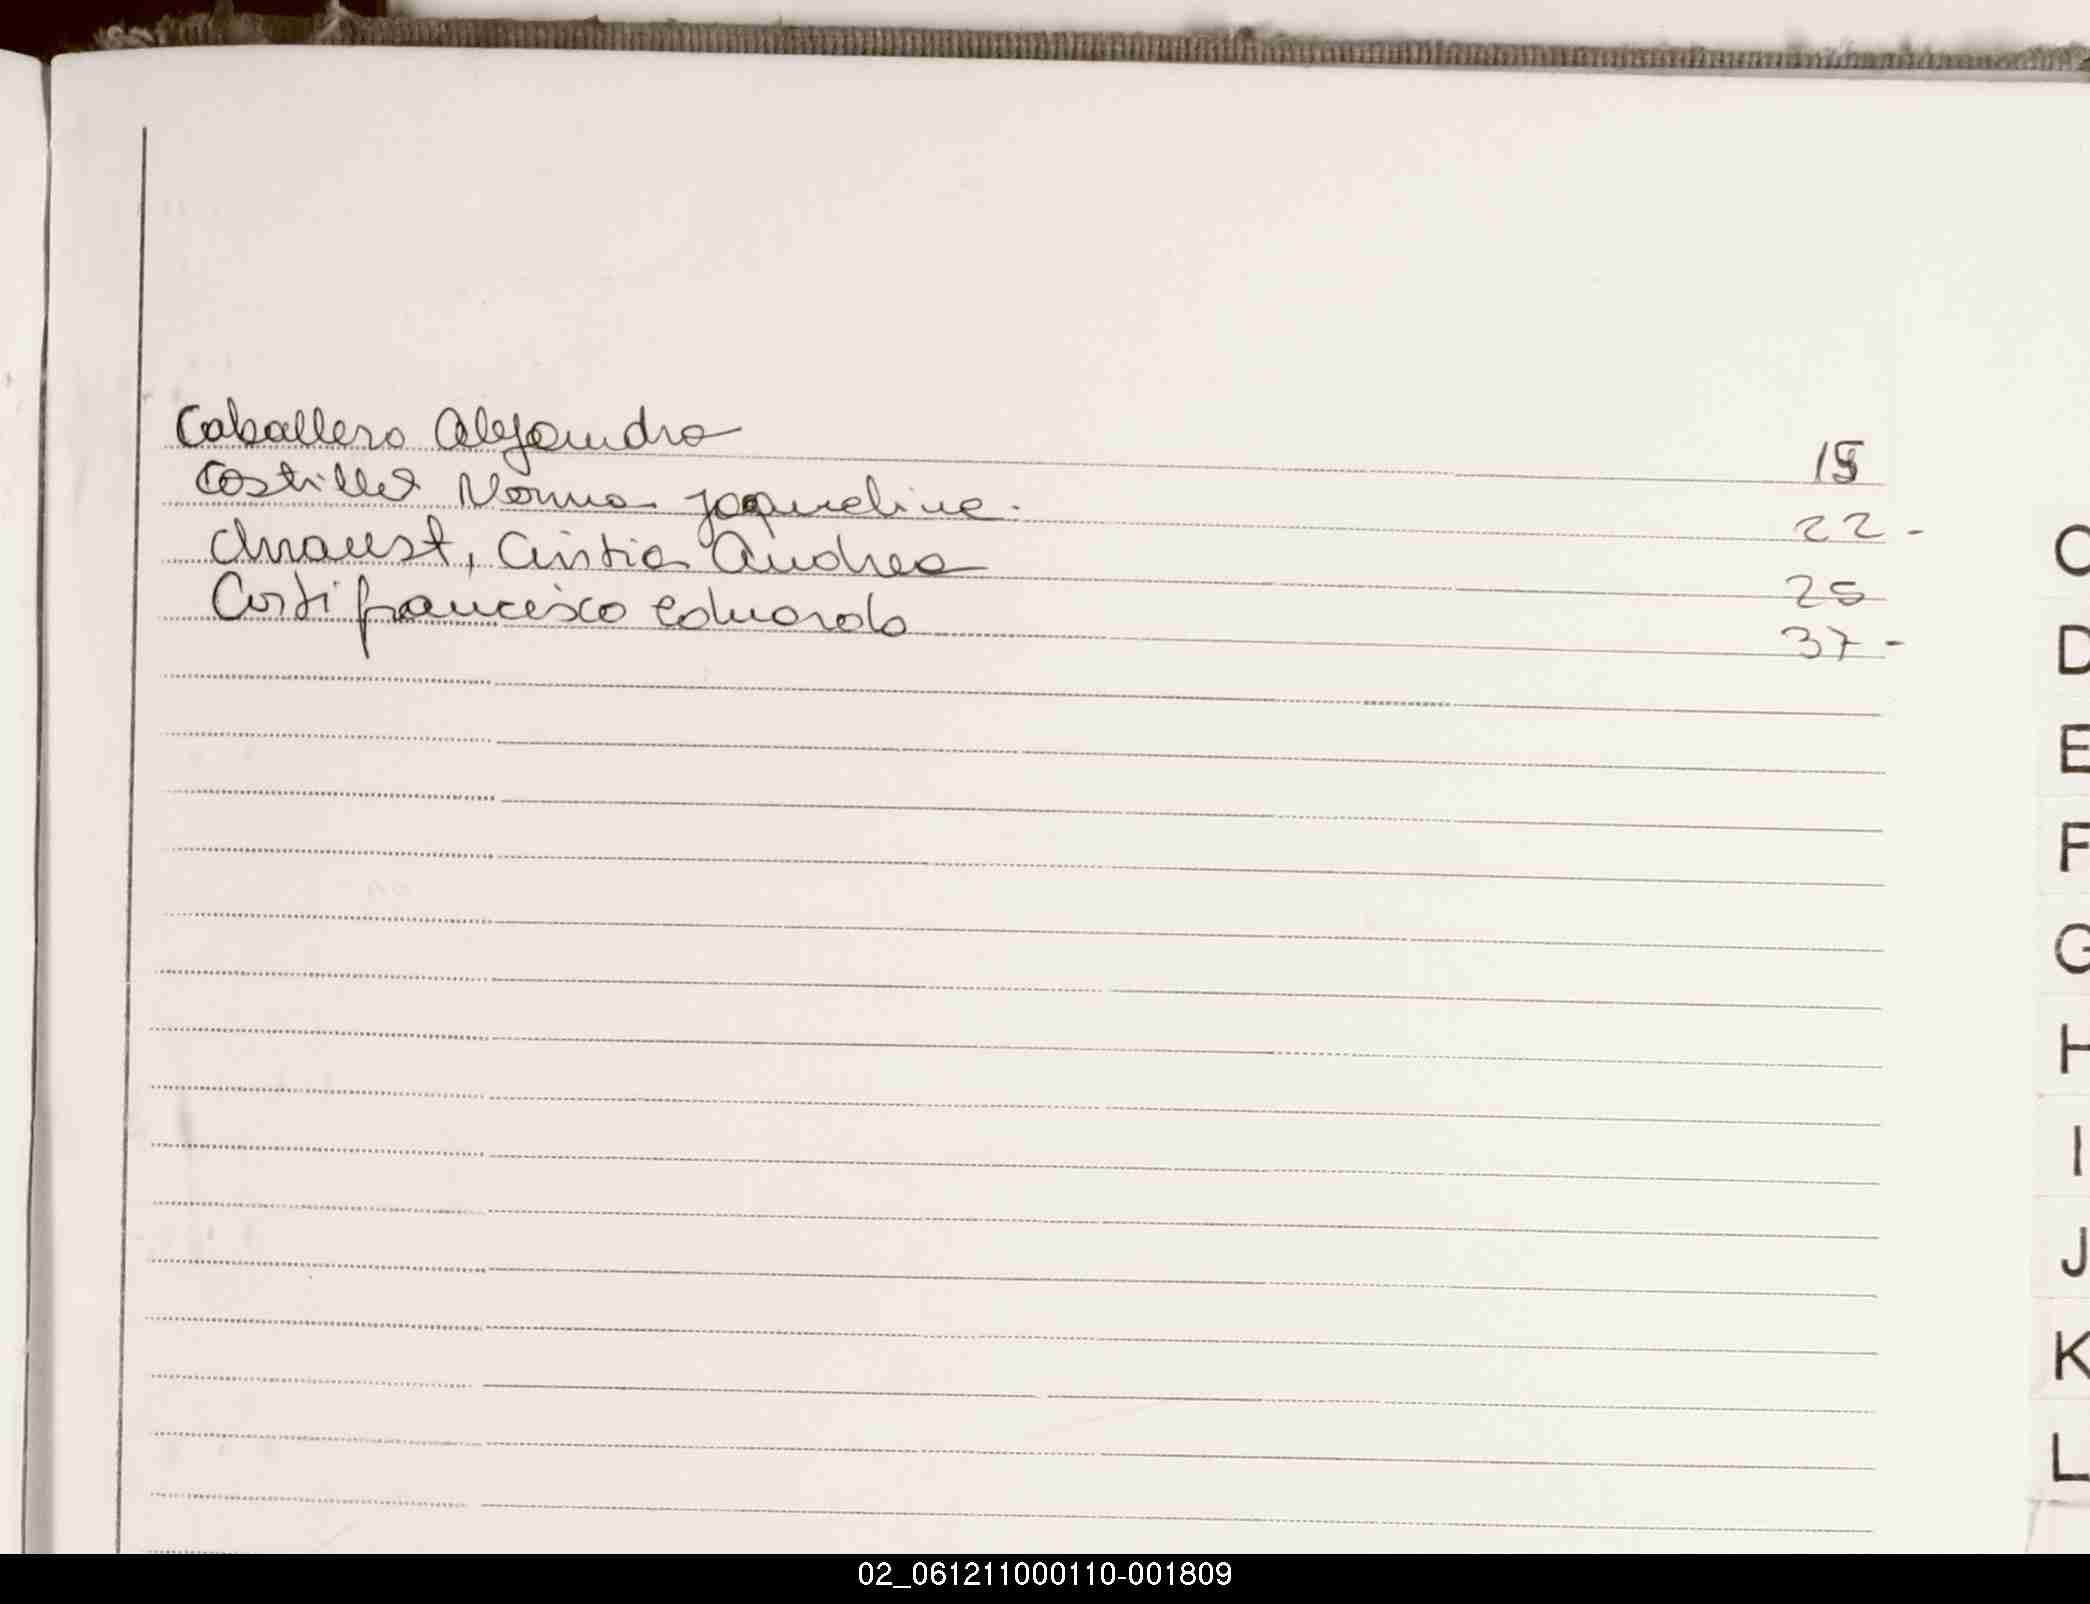 Caballero Alejandra 15
Costilla Norma Jaqueline. 22-
Cristia Andrea 25
Corti francisco Eduardo 37-
C
D
E
F
G
H
I
J
K
L
02_061211000110-001809